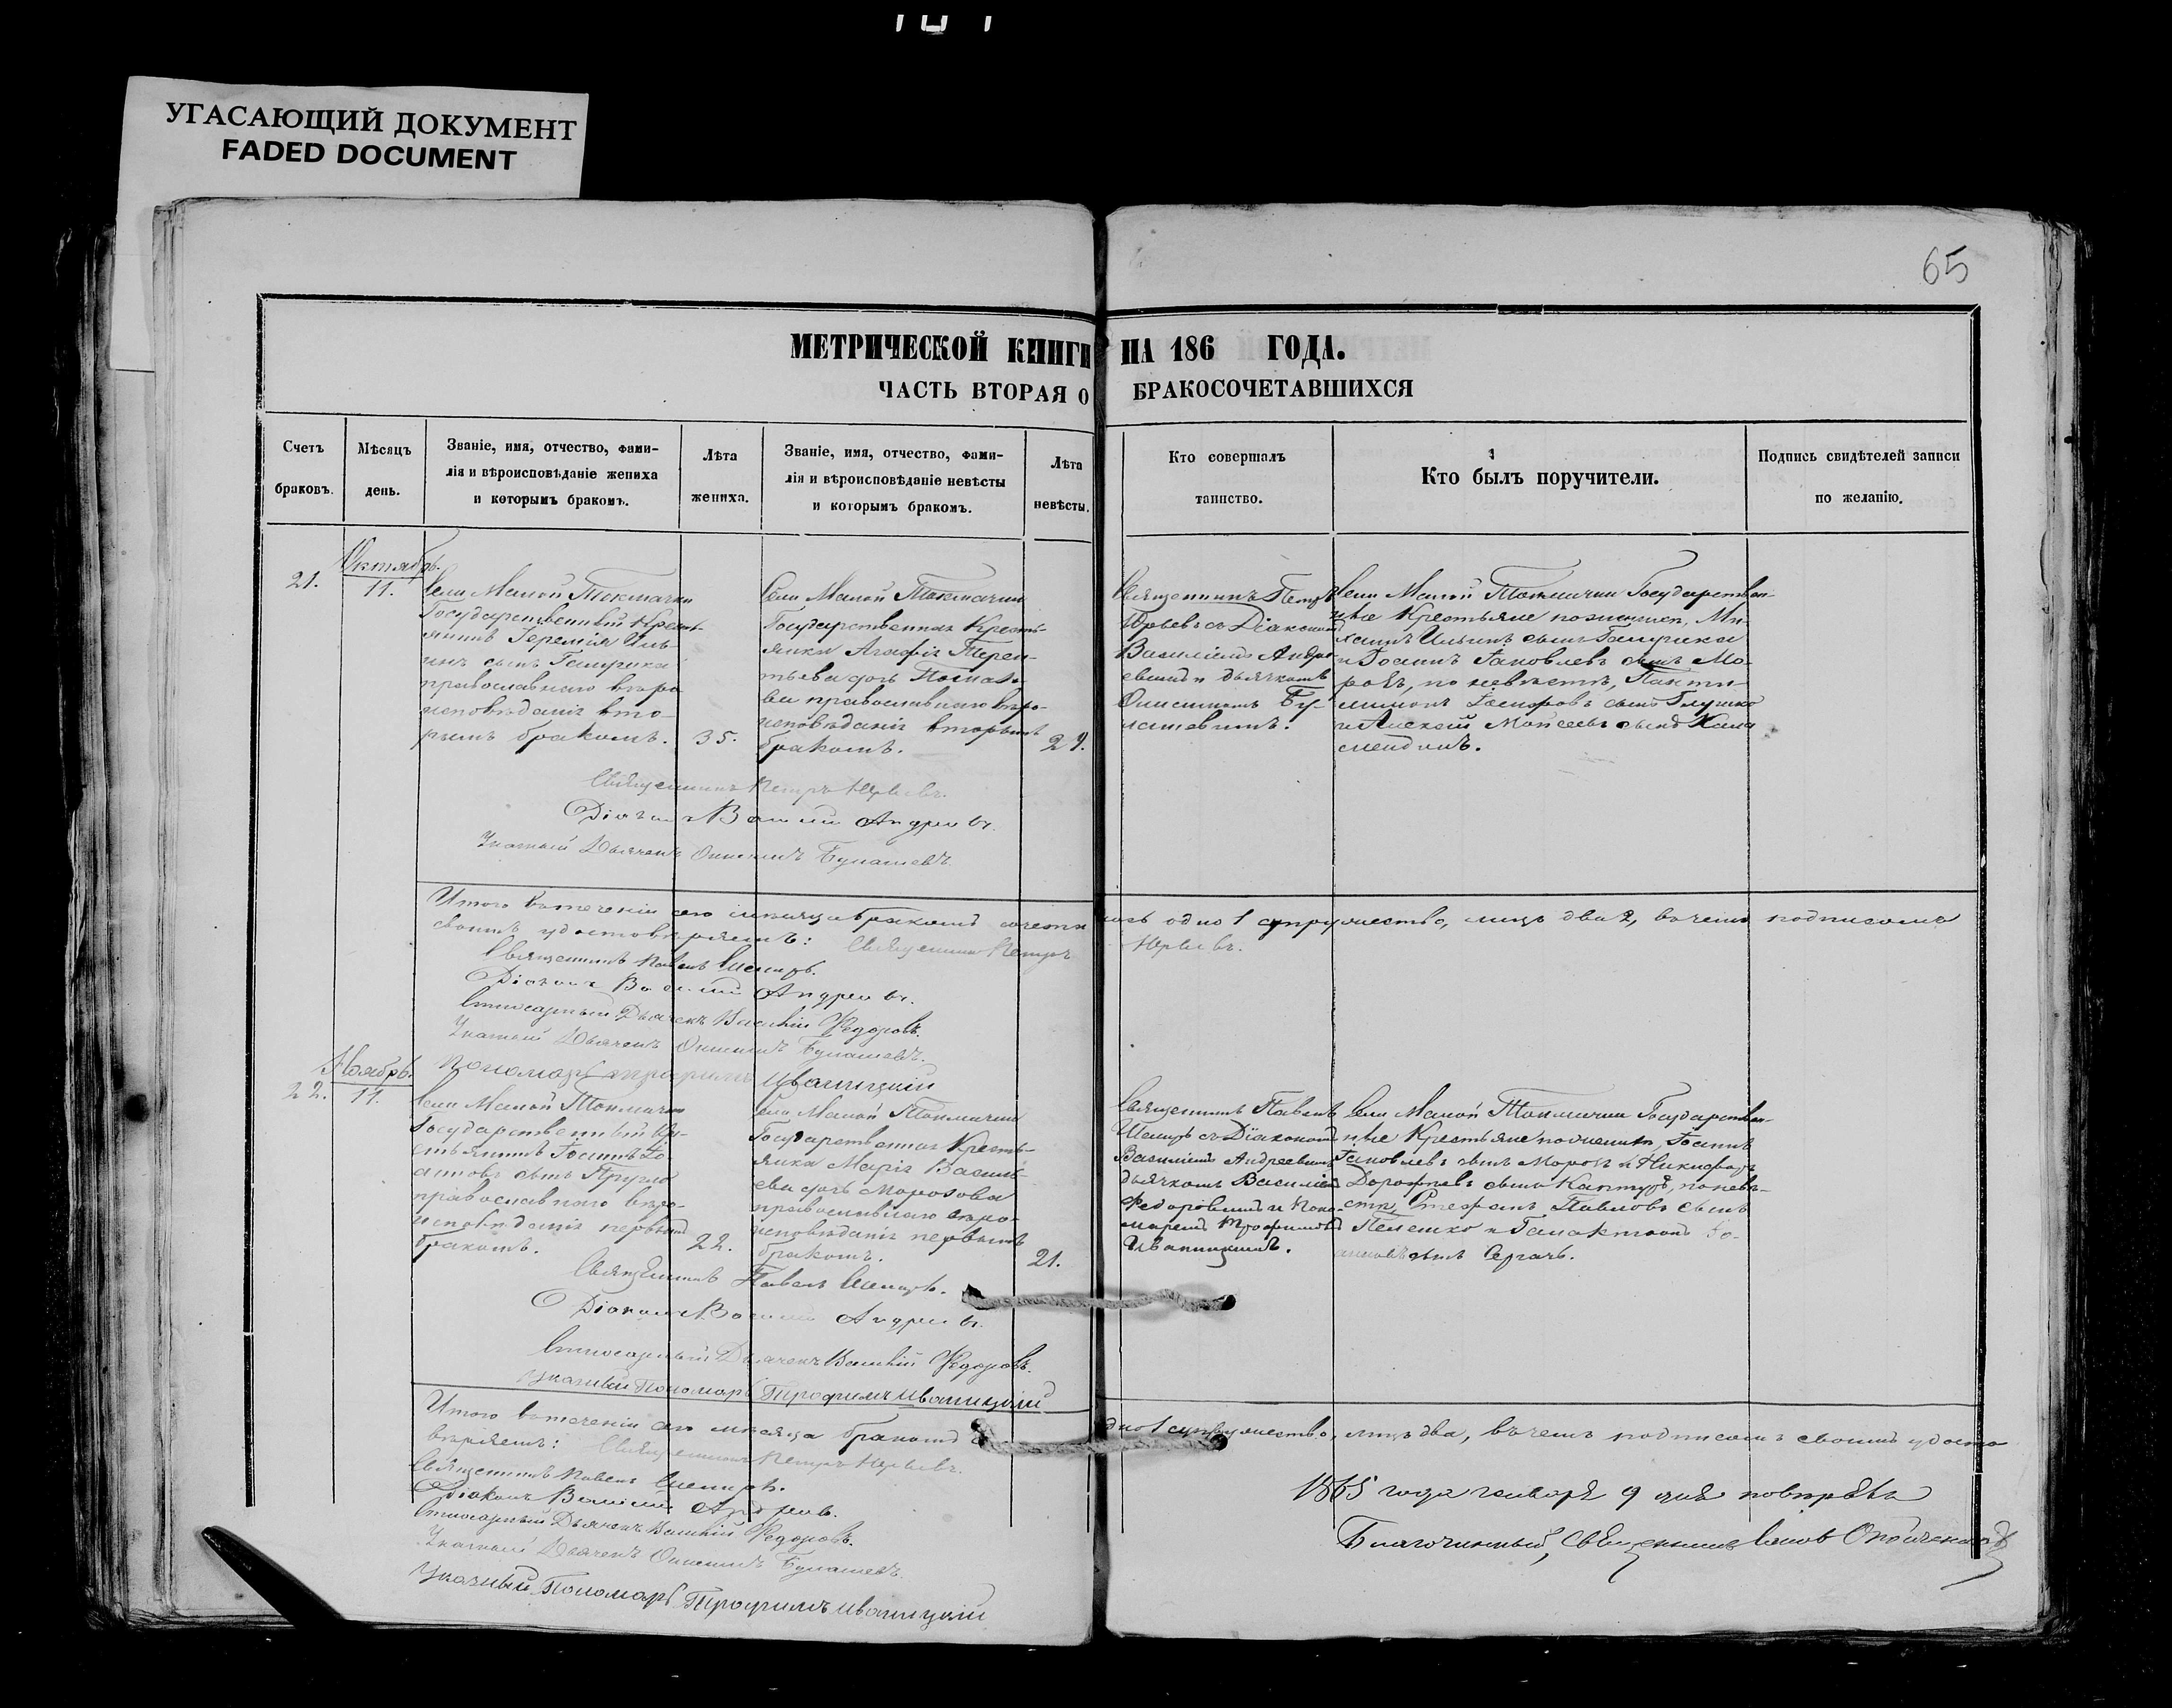 УГАСАЮЩИЙ ДОКУМЕНТ
FADED DOCUMENT
65
МЕТРИЧЕСКОЙ КНИГИ НА 186 ГОДА.
ЧАСТЬ ВТОРАЯ О БРАКОСОЧЕТАВШИХСЯ
Счетъ
браковъ.
Мѣсяцъ
день.
Званіе, имя, отчество, фами-
лія и вѣроисповѣданіе жениха
и которымъ бракомъ.
Лѣта
жениха.
Званіе, имя, отчество, фами-
лія и вѣроисповѣданіе невѣсты
и которымъ бракомъ.
Лѣта
невѣсты.
Кто совершалъ
таинство.
Кто былъ поручители.
Подпись свидѣтелей записи
по желанію.
21.
Октябрь.
11.
Села Малой Токмачки
Государственный Кресть-
янинъ Іеремія Иль-
инъ сынъ Гаврика
православнаго вѣро
исповѣданія вто-
рымъ бракомъ.
35.
Села Малой Токмачки
Государственная Кресть-
янка Агафія Терен-
тьева дочь
ва православнаго вѣро-
исповѣданія вторымъ
бракомъ.
29.
Священникъ Петръ
Юрьевъ съ Діакономъ
Василіемъ Андре-
евымъ и дьячкомъ
Онисимомъ Бу-
лашевымъ.
Села Малой Токмачки Государствен-
ные Крестьяне по женихѣ, Ми-
хаилъ Ильинъ сынъ Гаврика
и Іоаннъ Іаковлевъ сынъ Мо-
розъ, по невѣстѣ, Панти-
лимонъ сынъ Глушко
и Алексѣй Моисеевъ сынъ
Священникъ Петръ Юрьевъ.
Діаконъ Василій Андреевъ.
Указный Дьячекъ Онисимъ Булашевъ.
Итого втеченіи сего мѣсяца бракомъ сочета лось одно 1 супружество, лицъ два 2, въ чемъ подписомъ
своимъ удостовѣряемъ: Священникъ Петръ Юрьевъ.
Священникъ Павелъ
Діаконъ Василій Андреевъ.
Дьячекъ Василій Федоровъ.
Указный Дьячекъ Онисимъ Булашевъ.
Пономарь Трофимъ Иваницкій
22.
Ноябрь.
11.
Села Малой Токмачки
Государственный Кре-
стьянинъ Іоаннъ Іо-
анновъ сынъ
православнаго вѣро-
исповѣданія первымъ
бракомъ.
22.
Села Малой Токмачки
Государственная Кресть-
янка Марія Василь-
ева дочь Морозова
православнаго вѣро-
исповѣданія первымъ
бракомъ.
21.
Священникъ Павелъ
съ Діакономъ
Василіемъ Андреевымъ
дьячкомъ Василіемъ
Федоровымъ и Поно-
маремъ Трофимомъ
Иваницкимъ.
Села Малой Токмачки Государствен-
ные Крестьяне по женихѣ, Іоаннъ
Іаковлевъ сынъ Морозъ и Никифоръ
Дорофеевъ сынъ Кантуръ, по невѣ-
стѣ, Стефанъ Павловъ сынъ
Пелешко и Галактіонъ Іо-
анновъ сынъ Сергачъ.
Священникъ Павелъ
Діаконъ Василій Андреевъ.
Дьячекъ Василій Федоровъ.
Указный Пономарь Трофимъ Иваницкій
Итого втеченіи сего мѣсяца бракомъ одно 1 супружество, лицъ два, въ чемъ подписомъ своимъ удосто
вѣряемъ: Священникъ Петръ Юрьевъ.
Священникъ Павелъ
Діаконъ Василій Андреевъ.
Дьячекъ Василій Федоровъ.
Указный Дьячекъ Онисимъ Булашевъ.
Указный Пономарь Трофимъ Иваницкій
1865 года января 9 дня повѣрялъ
Благочинный, Священникъ